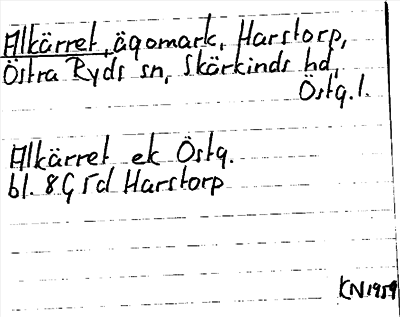 Alkärret, ägomark, Harstorp,
Östra Ryds sn, Skärkinds hd,
Östg. l.
Alkärret ek Östg.
bl. 8G 5d Harstorp
KN 1959